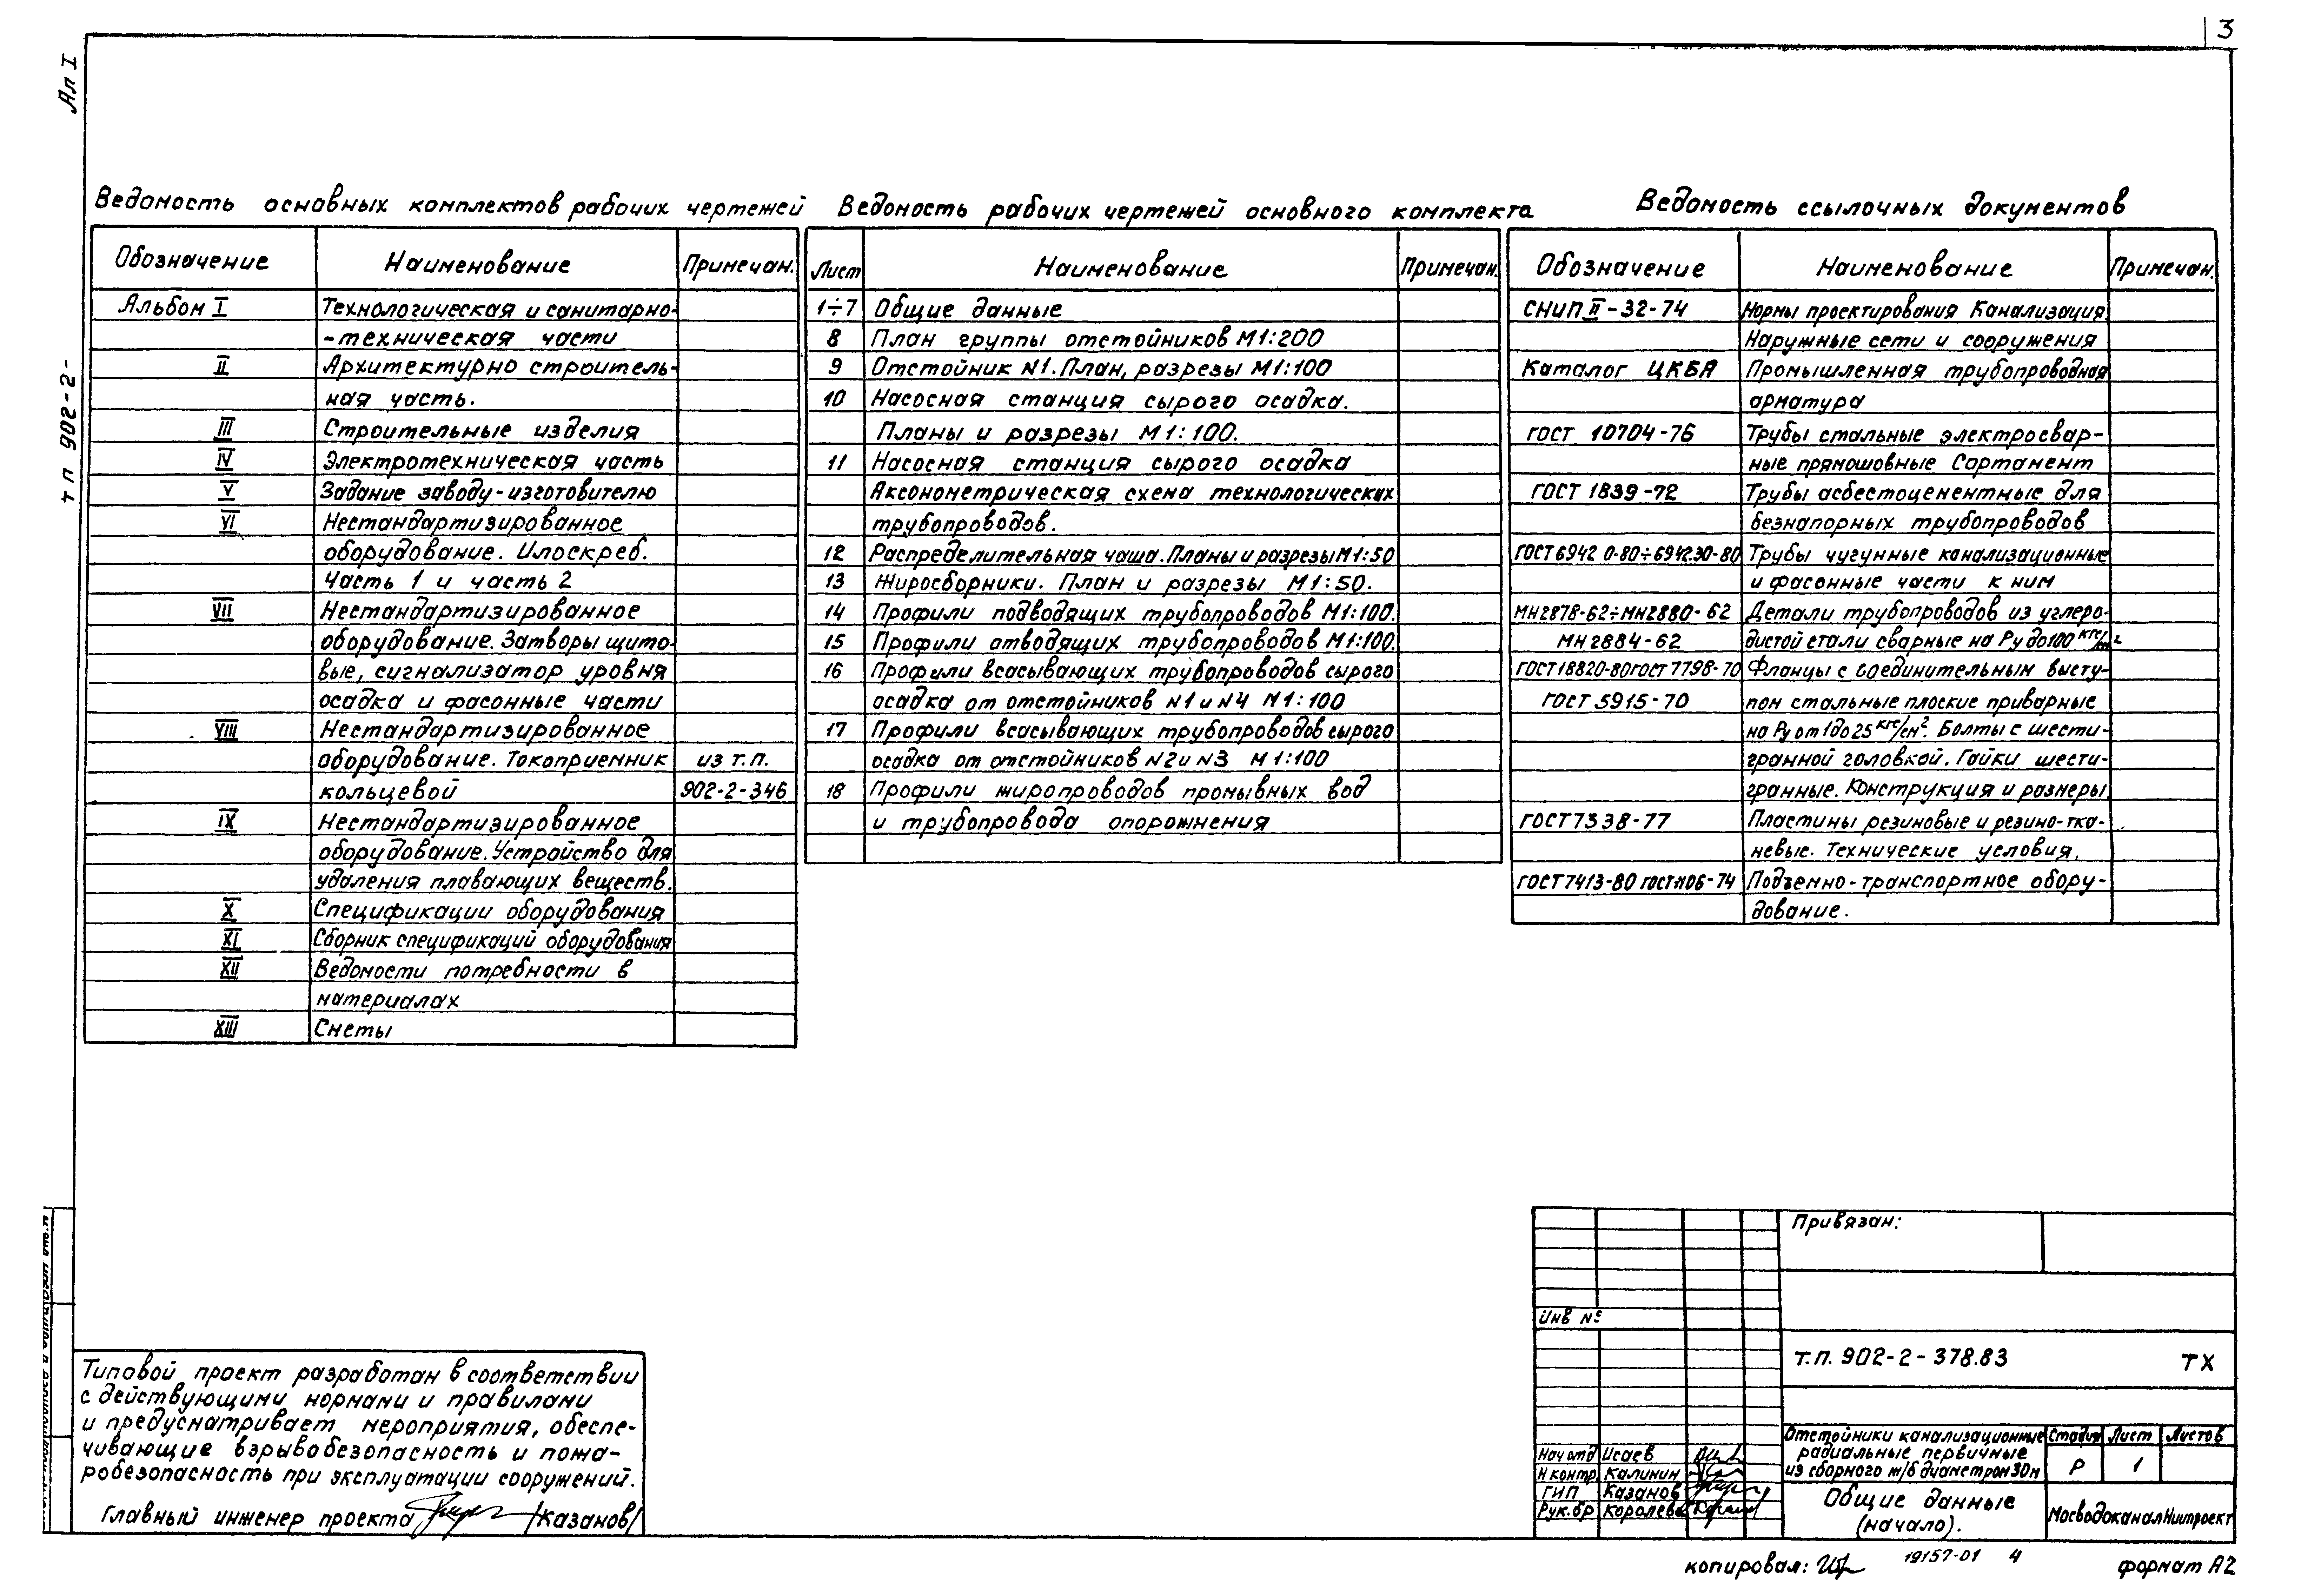 3
Ал I
т п 902-2-
Ведомость основных комплектов рабочих чертежей
Обозначение Наименование Примечан.
Альбом I Технологическая и санитарно-
-техническая части
II Архитектурно строитель-
ная часть.
III Строительные изделия
IV Электротехническая часть
V Задание заводу-изготовителю
VI Нестандартизированное
оборудование. Илоскреб.
Часть 1 и часть 2
VII Нестандартизированное
оборудование. Затворы щито-
вые, сигнализатор уровня
осадка и фасонные части
VIII Нестандартизированное
оборудование. Токоприемник из т.п.
кольцевой 902-2-346
IX Нестандартизированное
оборудование. Устройство для
удаления плавающих веществ.
X Спецификации оборудования
XI Сборник спецификаций оборудования
XII Ведомости потребности в
материалах
XIII Сметы
Ведомость рабочих чертежей основного комплекта
Лист Наименование Примечан.
1÷7 Общие данные
8 План группы отстойников М1:200
9 Отстойник N1. План, разрезы М1:100
10 Насосная станция сырого осадка.
Планы и разрезы М1:100.
11 Насосная станция сырого осадка
Аксонометрическая схема технологических
трубопроводов.
12 Распределительная чаша. Планы и разрезы М1:50
13 Жиросборники. План и разрезы М1:50.
14 Профили подводящих трубопроводов М1:100.
15 Профили отводящих трубопроводов М1:100.
16 Профили всасывающих трубопроводов сырого
осадка от отстойников N1 и N4 М1:100
17 Профили всасывающих трубопроводов сырого
осадка от отстойников N2 и N3 М1:100
18 Профили жиропроводов промывных вод
и трубопровода опорожнения
Ведомость ссылочных документов
Обозначение Наименование Примечан.
СНиП II-32-74 Нормы проектирования Канализация.
Наружные сети и сооружения
Каталог ЦКБА Промышленная трубопроводная
арматура
ГОСТ 10704-76 Трубы стальные электросвар-
ные прямошовные Сортамент
ГОСТ 1839-72 Трубы асбестоцементные для
безнапорных трубопроводов
ГОСТ 6942 0-80÷6942.30-80 Трубы чугунные канализационные
и фасонные части к ним
МН2878-62÷МН2880-62 Детали трубопроводов из углеро-
МН 2884-62 дистой стали сварные на Ру до100 кгс/см2
ГОСТ18820-80 ГОСТ 7798-70 Фланцы с соединительным высту-
ГОСТ 5915-70 пом стальные плоские приварные
на Ру от 1 до 25 кгс/см². Болты с шести-
гранной головкой. Гайки шести-
гранные. Конструкция и размеры.
ГОСТ7338-77 Пластины резиновые и резино-тка-
невые. Технические условия.
ГОСТ7413-80 ГОСТ1106-74 Подъемно-транспортное обору-
дование.
Типовой проект разработан в соответствии
с действующими нормами и правилами
и предусматривает мероприятия, обеспе-
чивающие взрывобезопасность и пожа-
робезопасность при эксплуатации сооружений.
Главный инженер проекта /Казанов/
Привязан:
Инв №
т.п. 902-2-378.83 ТХ
Отстойники канализационные
радиальные первичные
из сборного ж/б диаметром 30м
Стадия Лист Листов
Р 1
Нач отд Исаев
Н контр. Калинин
ГИП Казанов
Рук.бр Королева
Общие данные
(начало).
МосводоканалНиипроект
копировал: 19157-01 4 формат А2